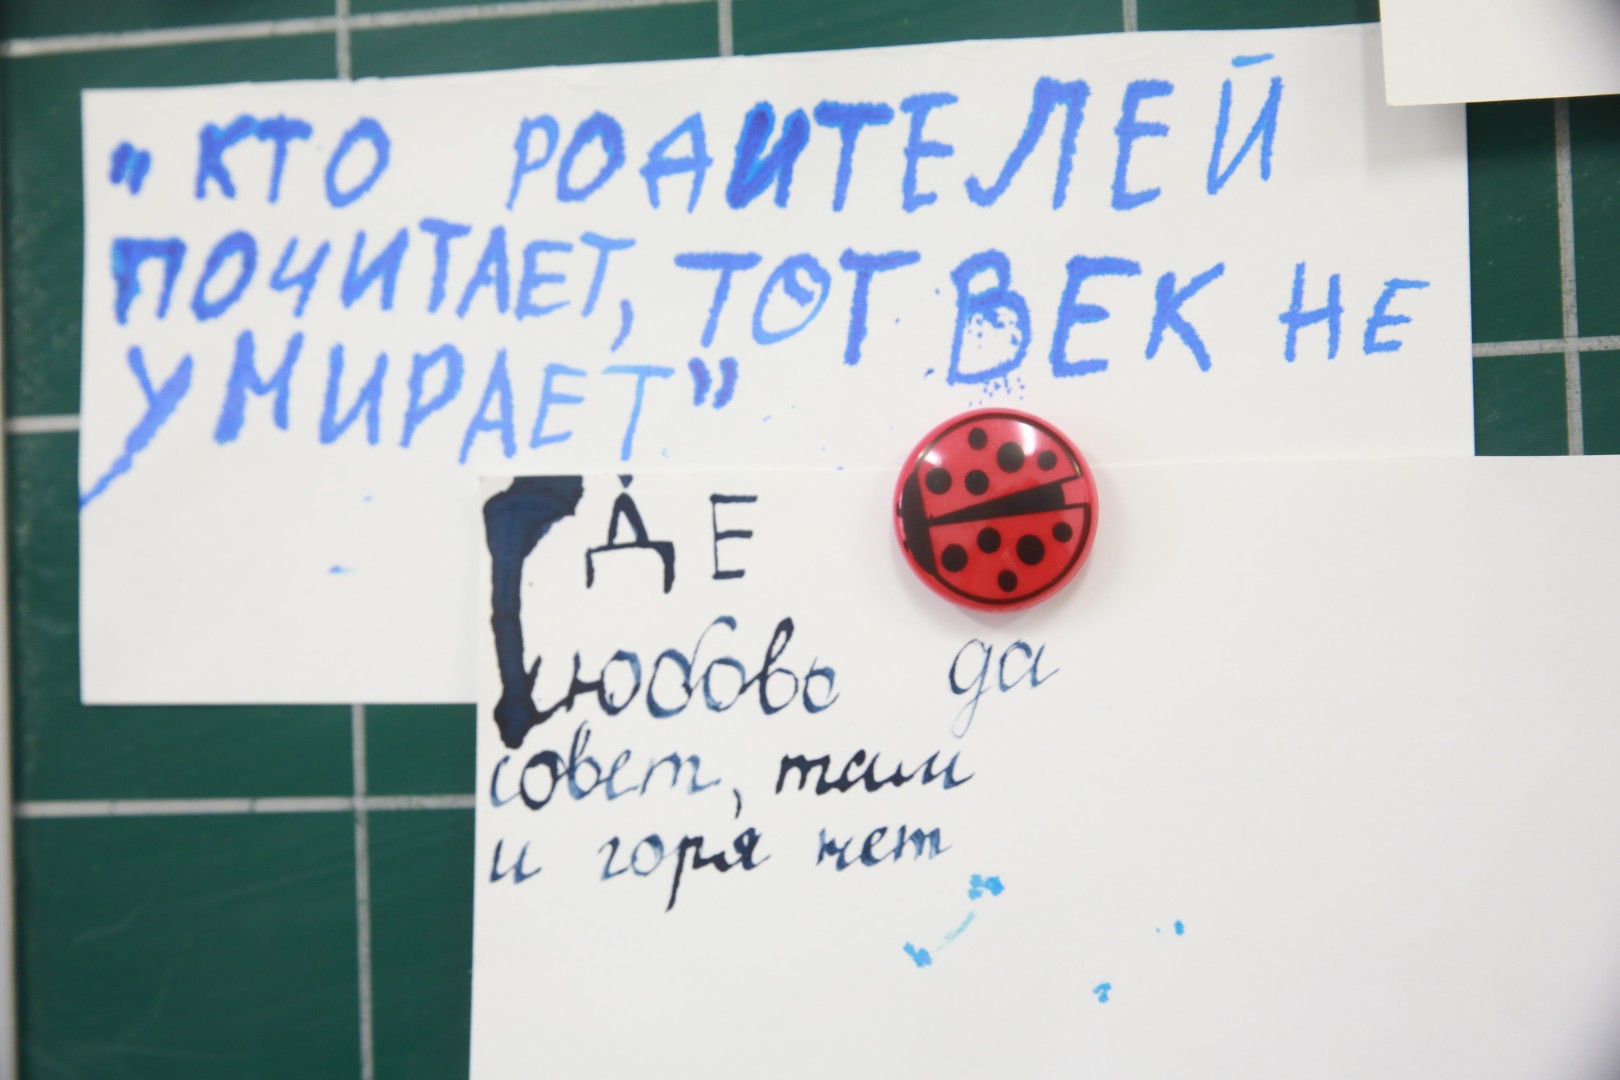 "КТО РОДИТЕЛЕЙ
ПОЧИТАЕТ, ТОТ ВЕК НЕ
УМИРАЕТ"
ГДЕ
любовь да
совет, там
и горя нет